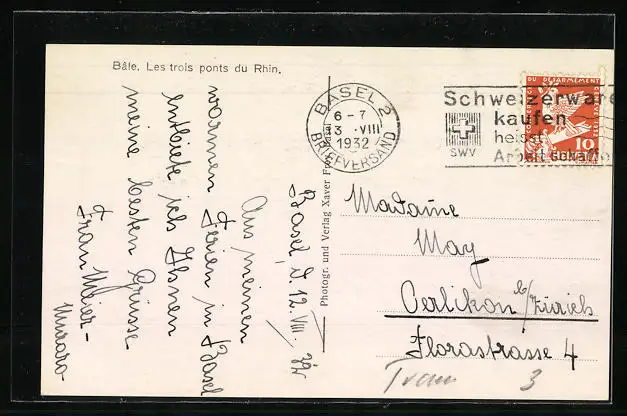 Bâle. Les trois ponts du Rhin.
BASEL 2
6-7
3.VIII
1932
BRIEFVERSAND
Schweizerware
kaufen
heisst
Arbeit schaffe
SWV
DU DÉSARMEMENT
10
Photogr. und Verlag Xaver Frey, Basel
Basel, d. 12. VIII. 32
Aus meinen
warmen Ferien in Basel
entbiete ich Ihnen
meine besten Grüsse
Frau Meier-
Madame
May
Oerlikon b/Zürich
Florastrasse 4
3